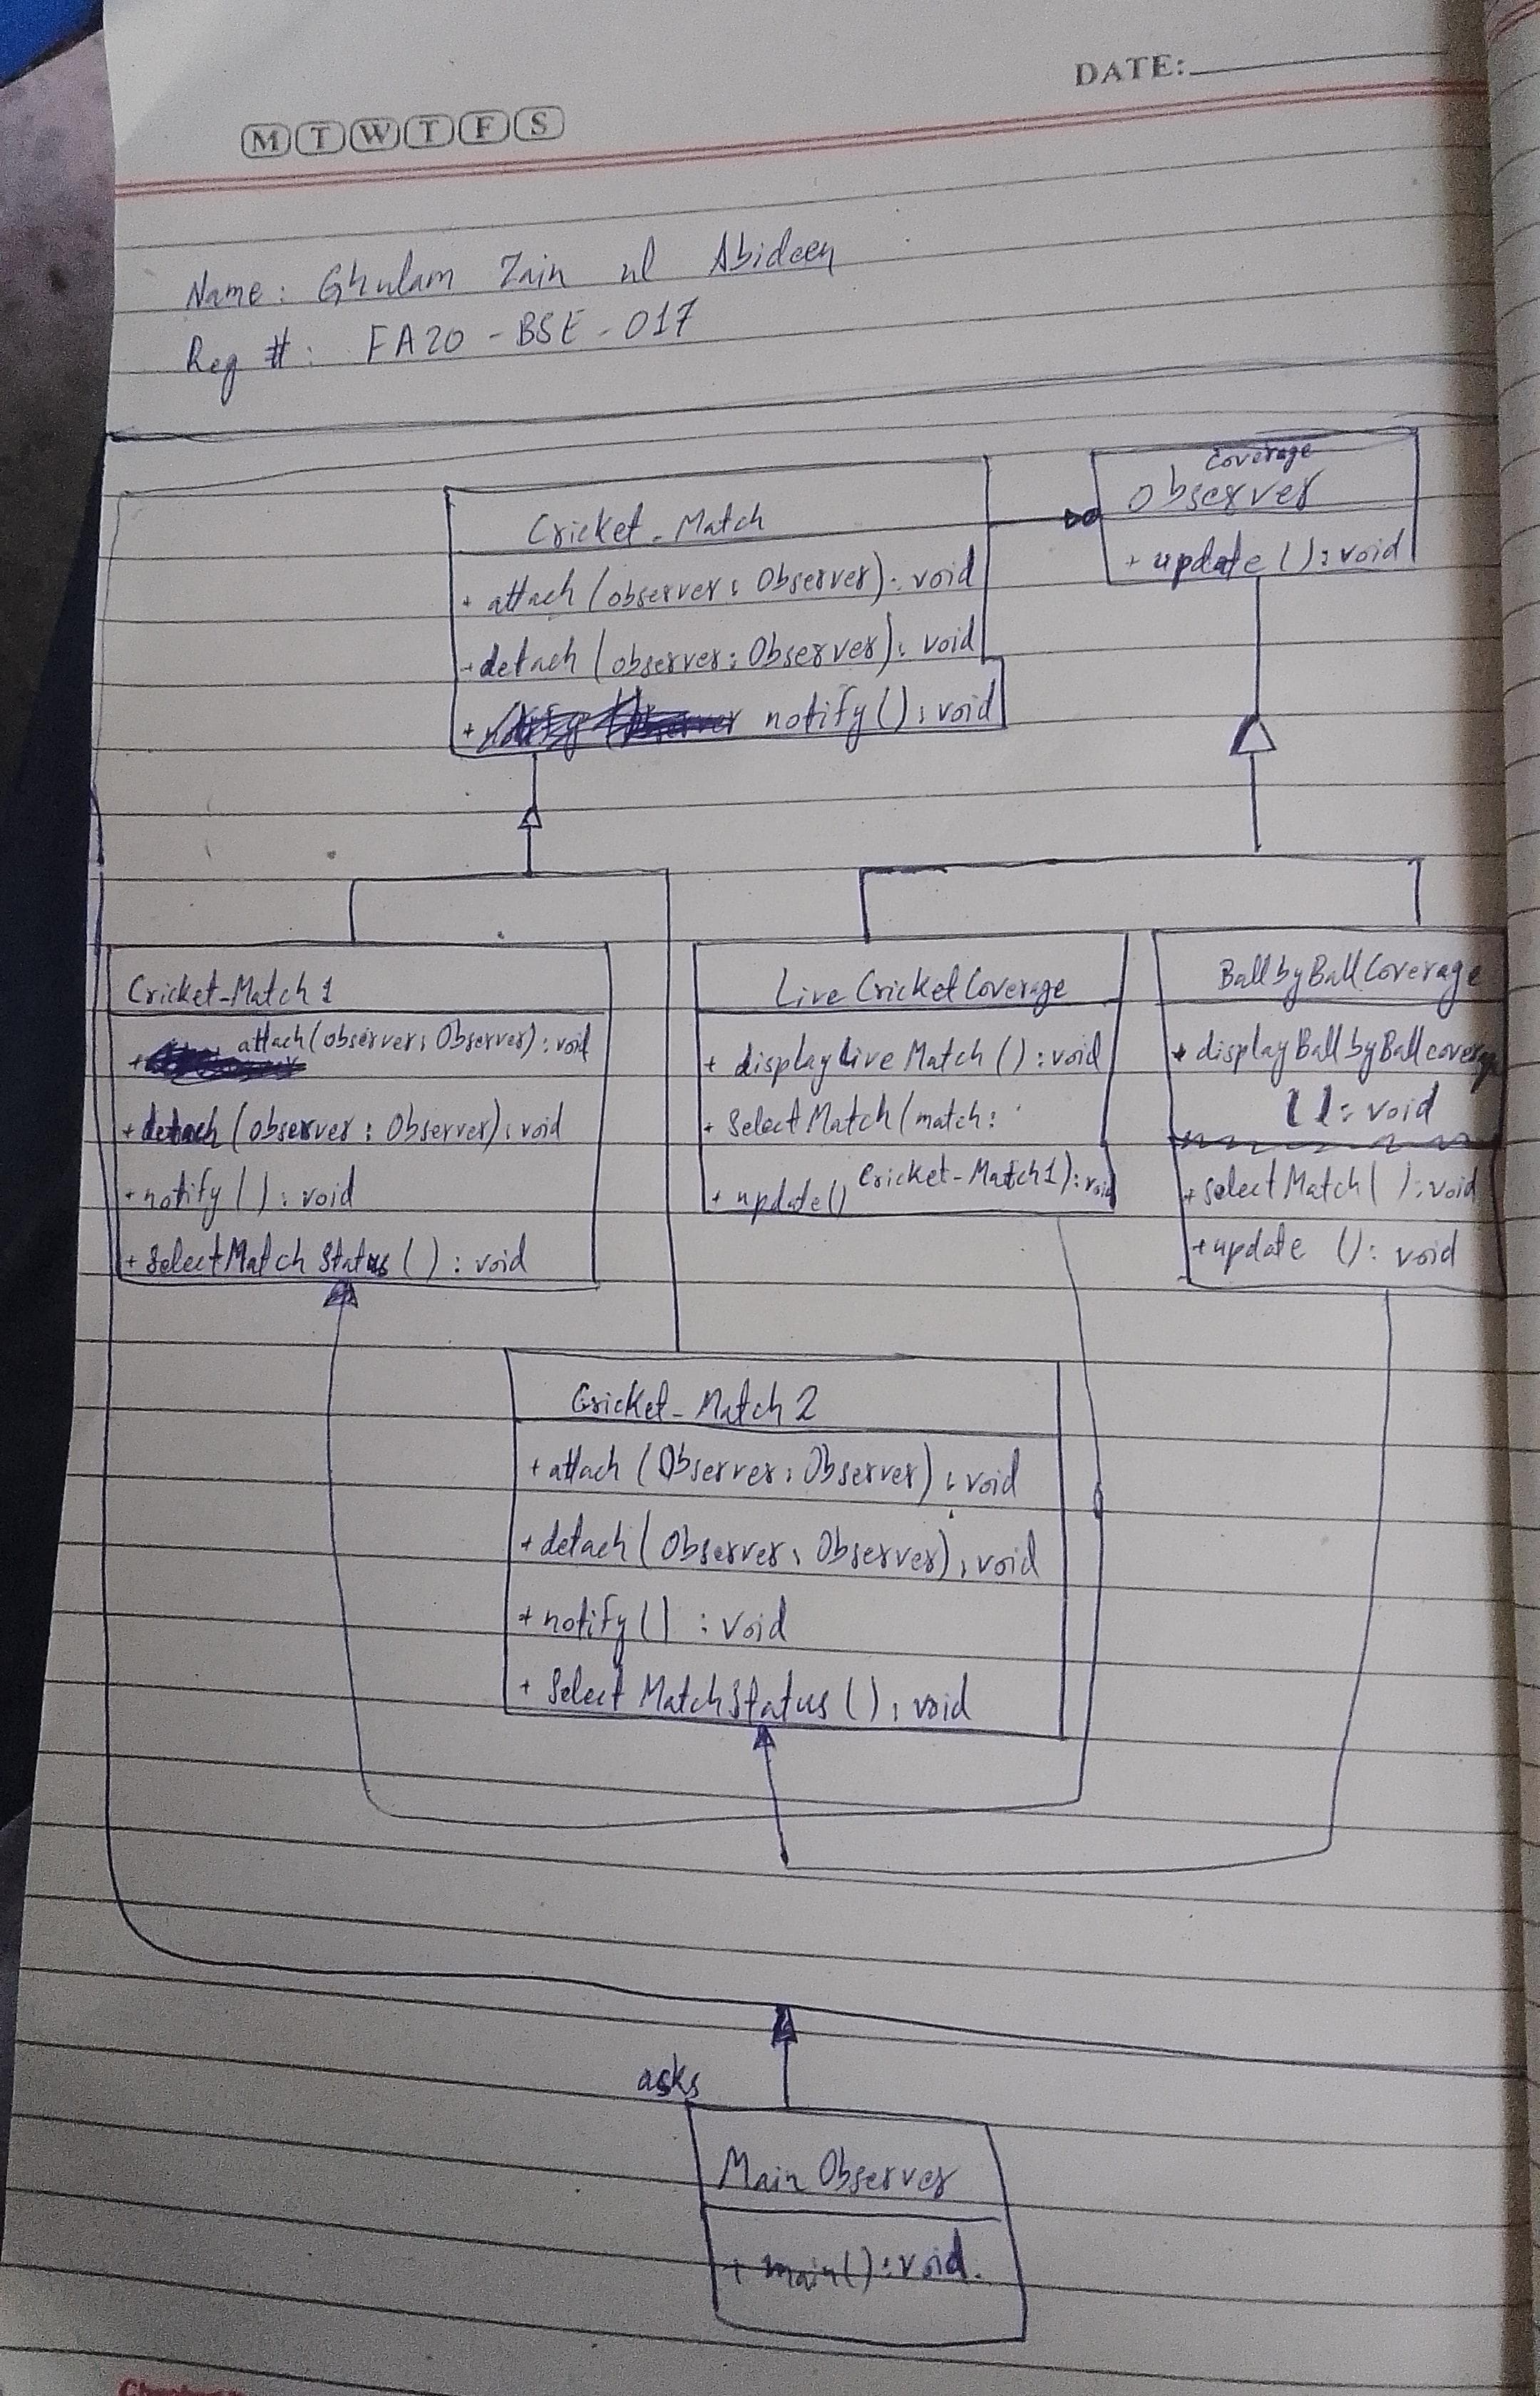 DATE:
M T W T F S
Name: Ghulam Zain ul Abideen
Reg #: FA20-BSE-017
Cricket_Match
+ attach (observer: Observer): void
+ detach (observer: Observer): void
+ notify(): void
Coverage
Observer
+ update (): void
Cricket_Match1
+ attach(observer: Observer): void
+ detach (observer: Observer): void
+ notify(): void
+ SelectMatch Status (): void
LiveCricketCoverage
+ displayLiveMatch (): void
+ SelectMatch(match:
Cricket-Match1): void
+ update()
BallbyBallCoverage
+ displayBallbyBallcoverage
(): void
+ SelectMatch( ): void
+ update (): void
Cricket_Match2
+ attach (Observer: Observer): void
+ detach (Observer: Observer): void
+ notify() : void
+ Select MatchStatus (): void
asks
Main Observer
+ main(): void.